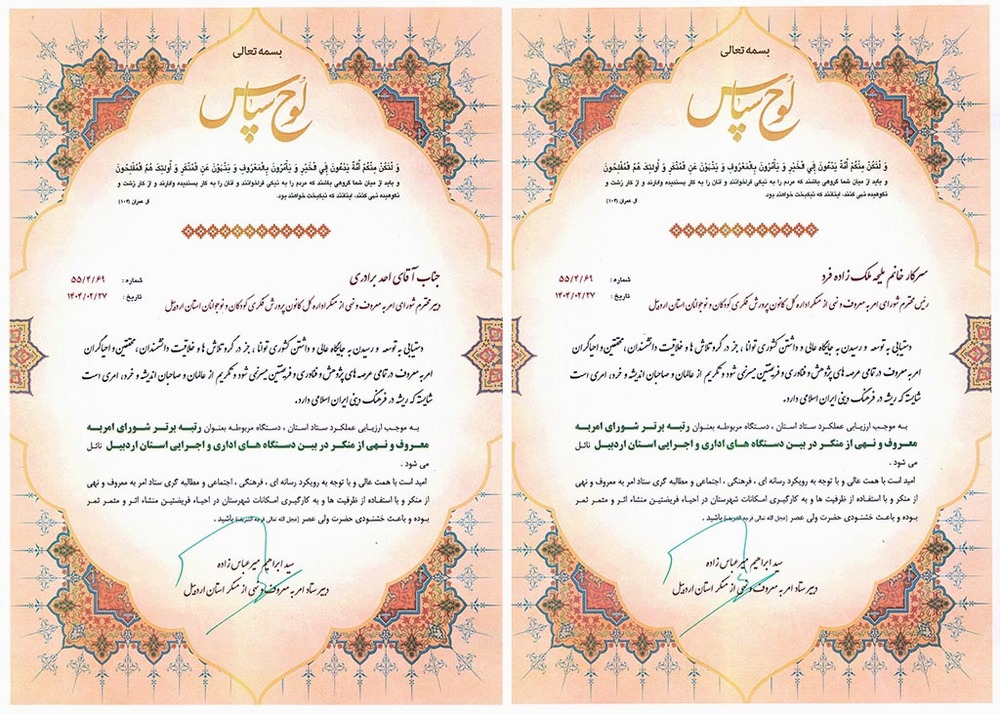 بسمه تعالی
لوح سپاس
وَ لْتَكُنْ مِنْكُمْ أُمَّةٌ يَدْعُونَ فِي الْخَيْرِ وَ يَأْمُرُونَ بِالْمَعْرُوفِ وَ يَنْهَوْنَ عَنِ الْمُنْكَرِ وَ أُولئِكَ هُمُ الْمُفْلِحُونَ
و باید از میان شما گروهی باشند که مردم را به نیکی فراخوانند و آنان را به کار پسندیده وادارند و از کار زشت و
نکوهیده نهی کنند، اینانند که نیکبخت خواهند بود.
آل عمران (۱۰۴)
جناب آقای احد برادری
شماره : ۵۵/۴/۶۹
تاریخ : ۱۴۰۴/۰۲/۲۷
دبیر محترم شورای امر به معروف و نهی از منکر اداره کل کانون پرورش فکری کودکان و نوجوانان استان اردبیل
دستیابی به توسعه و رسیدن به جایگاه عالی و داشتن کشوری توانا، جز در گرو تلاش ها و خلاقیت دانشمندان، محققین و احیاگران
امر به معروف در تمامی عرصه های پژوهش و فناوری و فریضتین میسر نمی شود و تکریم از عالمان و صاحبان اندیشه و خرد، امری است
شایسته که ریشه در فرهنگ دینی ایران اسلامی دارد.
به موجب ارزیابی عملکرد ستاد استان ، دستگاه مربوطه بعنوان رتبه برتر شورای امر به
معروف و نهی از منکر در بین دستگاه های اداری و اجرایی استان اردبیل نائل
می شود .
امید است با همت عالی و با توجه به رویکرد رسانه ای ، فرهنگی ، اجتماعی و مطالبه گری ستاد امر به معروف و نهی
از منکر و با استفاده از ظرفیت ها و به کارگیری امکانات شهرستان در احیاء فریضتین منشاء اثر و مثمر ثمر
بوده و باعث خشنودی حضرت ولی عصر (عجل الله تعالی فرجه الشریف) باشید .
سید ابراهیم میرعباس زاده
دبیر ستاد امر به معروف و نهی از منکر استان اردبیل
بسمه تعالی
لوح سپاس
وَ لْتَكُنْ مِنْكُمْ أُمَّةٌ يَدْعُونَ فِي الْخَيْرِ وَ يَأْمُرُونَ بِالْمَعْرُوفِ وَ يَنْهَوْنَ عَنِ الْمُنْكَرِ وَ أُولئِكَ هُمُ الْمُفْلِحُونَ
و باید از میان شما گروهی باشند که مردم را به نیکی فراخوانند و آنان را به کار پسندیده وادارند و از کار زشت و
نکوهیده نهی کنند، اینانند که نیکبخت خواهند بود.
آل عمران (۱۰۴)
سرکار خانم ملیحه ملک زاده فرد
شماره : ۵۵/۴/۶۹
تاریخ : ۱۴۰۴/۰۲/۲۷
رئیس محترم شورای امر به معروف و نهی از منکر اداره کل کانون پرورش فکری کودکان و نوجوانان استان اردبیل
دستیابی به توسعه و رسیدن به جایگاه عالی و داشتن کشوری توانا، جز در گرو تلاش ها و خلاقیت دانشمندان، محققین و احیاگران
امر به معروف در تمامی عرصه های پژوهش و فناوری و فریضتین میسر نمی شود و تکریم از عالمان و صاحبان اندیشه و خرد، امری است
شایسته که ریشه در فرهنگ دینی ایران اسلامی دارد.
به موجب ارزیابی عملکرد ستاد استان ، دستگاه مربوطه بعنوان رتبه برتر شورای امر به
معروف و نهی از منکر در بین دستگاه های اداری و اجرایی استان اردبیل نائل
می شود .
امید است با همت عالی و با توجه به رویکرد رسانه ای ، فرهنگی ، اجتماعی و مطالبه گری ستاد امر به معروف و نهی
از منکر و با استفاده از ظرفیت ها و به کارگیری امکانات شهرستان در احیاء فریضتین منشاء اثر و مثمر ثمر
بوده و باعث خشنودی حضرت ولی عصر (عجل الله تعالی فرجه الشریف) باشید .
سید ابراهیم میرعباس زاده
دبیر ستاد امر به معروف و نهی از منکر استان اردبیل